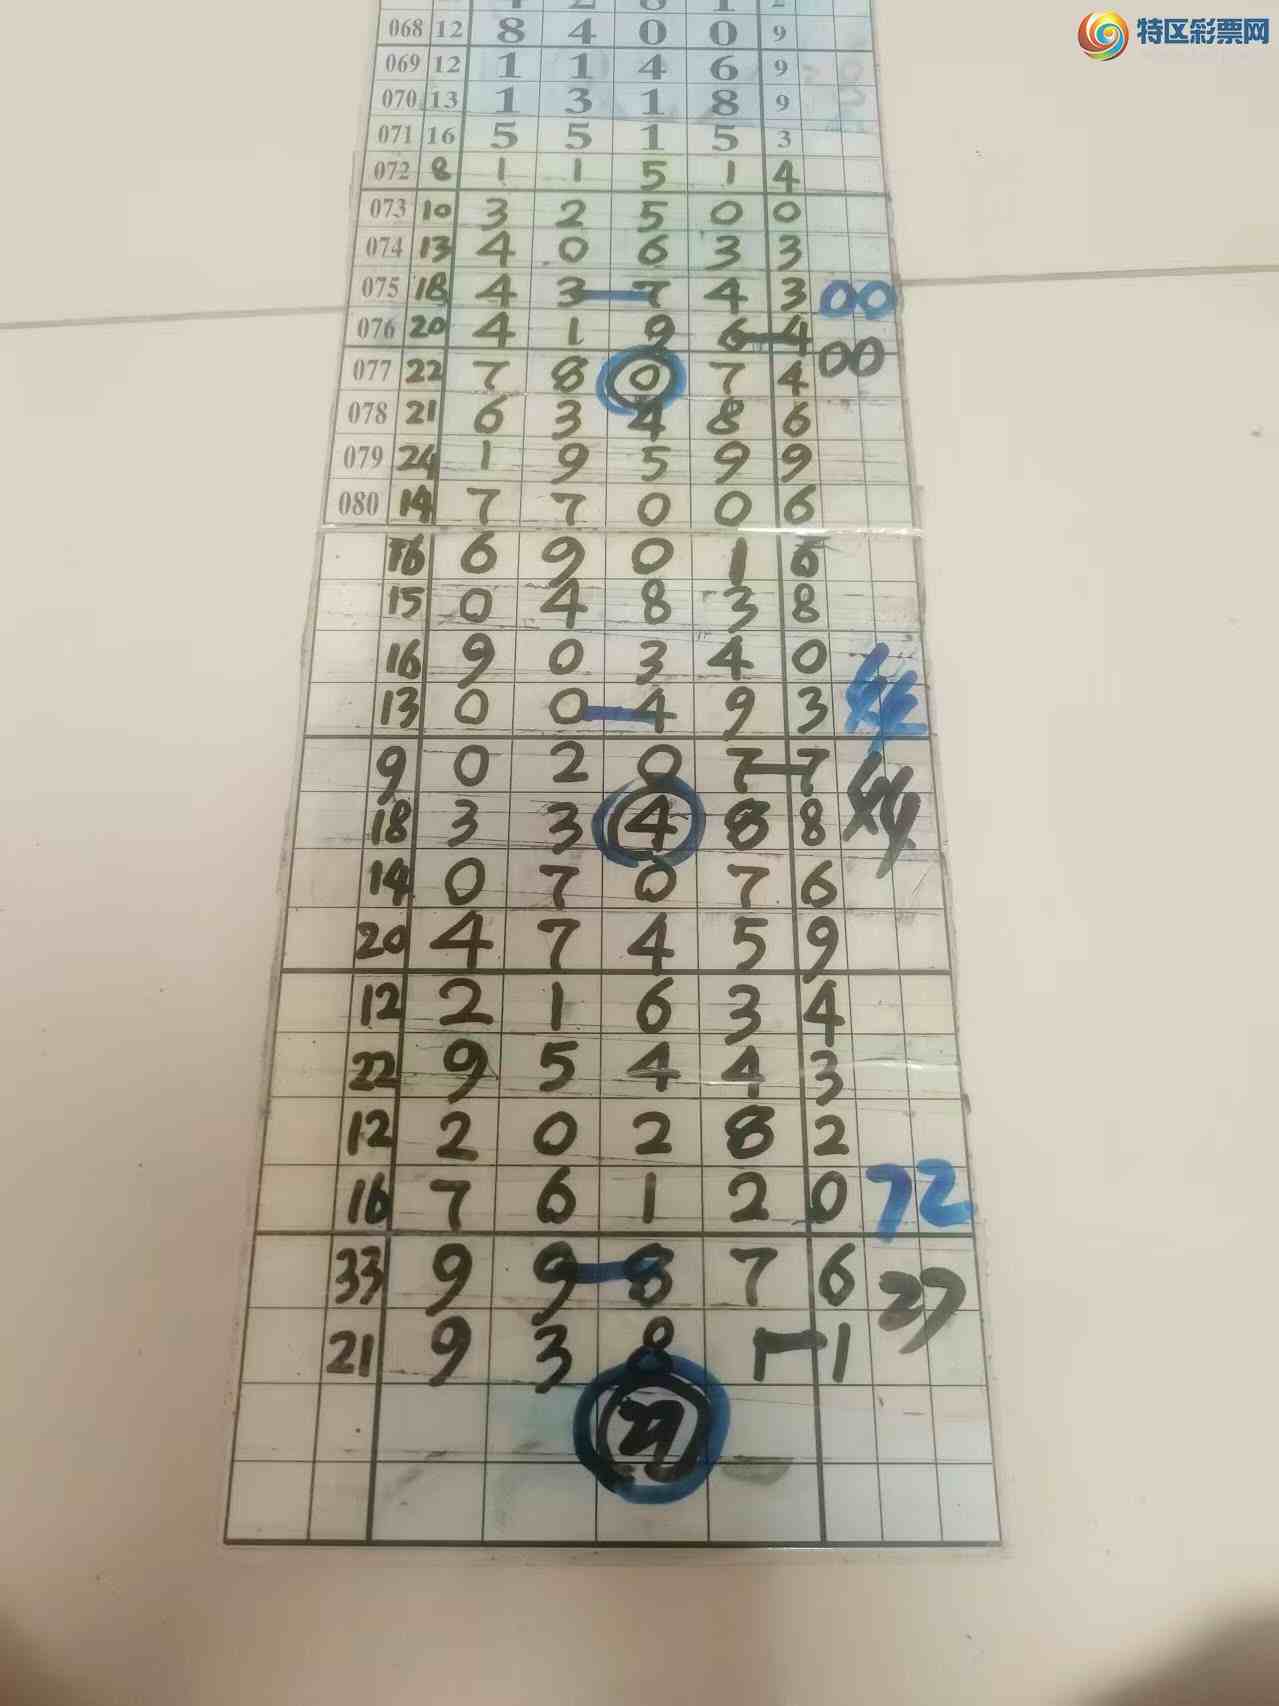 特区彩票网
068 12 8 4 0 0 9
069 12 1 1 4 6 9
070 13 1 3 1 8 9
071 16 5 5 1 5 3
072 8 1 1 5 1 4
073 10 3 2 5 0 0
074 13 4 0 6 3 3
075 18 4 3 7 4 3 00
076 20 4 1 9 6 4 00
077 22 7 8 0 7 4
078 21 6 3 4 8 6
079 24 1 9 5 9 9
080 14 7 7 0 0 6
16 6 9 0 1 6
15 0 4 8 3 8
16 9 0 3 4 0
13 0 0 4 9 3
9 0 2 0 7 7
18 3 3 4 8 8
14 0 7 0 7 6
20 4 7 4 5 9
12 2 1 6 3 4
22 9 5 4 4 3
12 2 0 2 8 2
16 7 6 1 2 0 72
33 9 9 8 7 6 27
21 9 3 8 1 1
27